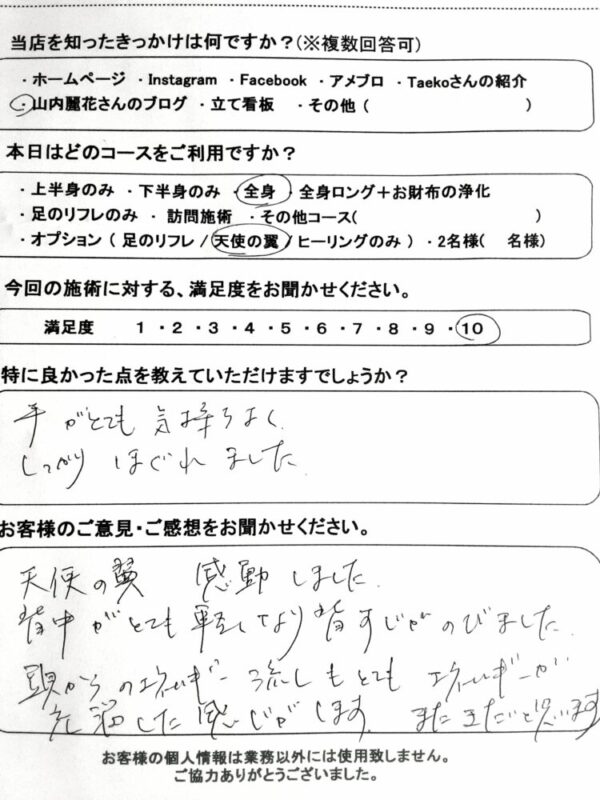 当店を知ったきっかけは何ですか？(※複数回答可)
・ホームページ ・Instagram ・Facebook ・アメブロ ・Taekoさんの紹介
・山内麗花さんのブログ ・立て看板 ・その他 ( )
本日はどのコースをご利用ですか？
・上半身のみ ・下半身のみ ・全身 ・全身ロング＋お財布の浄化
・足のリフレのみ ・訪問施術 ・その他コース( )
・オプション ( 足のリフレ / 天使の翼 / ヒーリングのみ ) ・2名様( 名様)
今回の施術に対する、満足度をお聞かせください。
満足度 1 ・ 2 ・ 3 ・ 4 ・ 5 ・ 6 ・ 7 ・ 8 ・ 9 ・ 10
特に良かった点を教えていただけますでしょうか？
手がとても気持ちよく
しっかりほぐれました
お客様のご意見・ご感想をお聞かせください。
天使の翼 感動しました.
背中がとても軽くなり背すじがのびました.
頭からのエネルギー流しもとてもエネルギーが
した感じがします. またきたいと思います
お客様の個人情報は業務以外には使用致しません。
ご協力ありがとうございました。